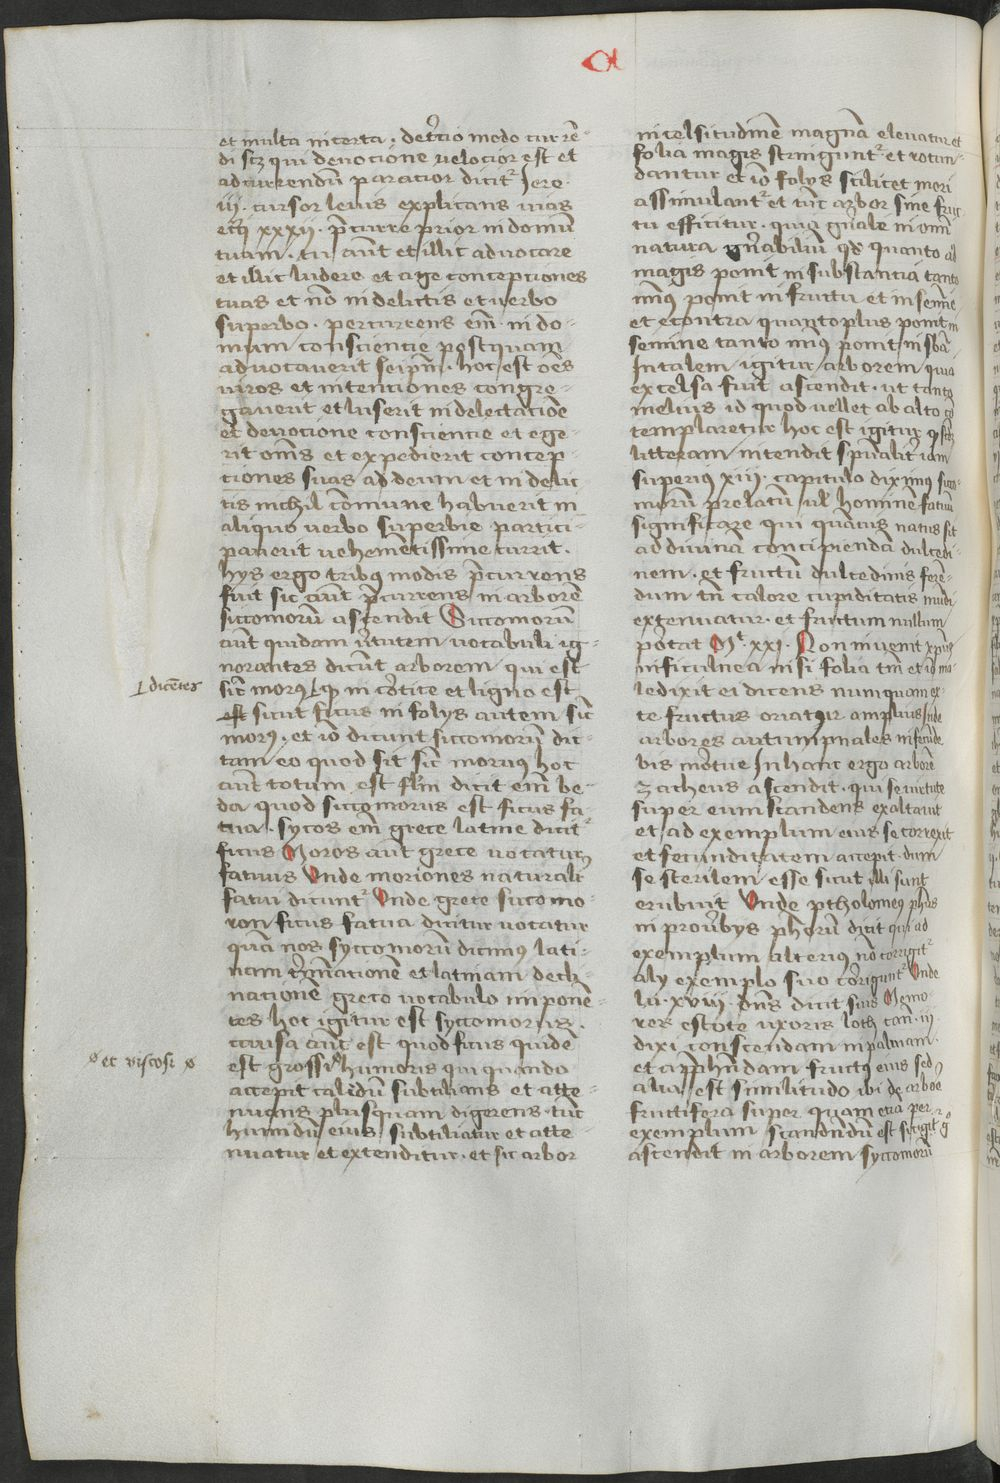 a
et multa incerta. det̄cio modo currē-
di scz qui devocione velocior est et
ad currendū paracior dicit² Jere.
iij. cursor levis explicans vias
ecĉi xxxij. p̄curre prior in domū
tuam. tu aūt et illic advocare
et illic ludere et age concepciones
tuas et nō in delictis et verbo
superbo. percurrens em̄ in do-
mum consciencie postquam
advocaverit seip̄m. hoc est oēs
viros et intentiones congre-
gaverit et luserit in delectaciōe
et devocione consciencie et ege-
rit om̄s et expedierit concep-
tiones suas ad deum et in delic
tis nichil cōmune habuerit ni
aliquo verbo superbie partici-
paverit vehemētissime currit.
hys ergo tribus modis p̄currens
fuit sic aūt p̄currens in arborē
siccomorū ascendit Siccomorū
aūt quidam v̄tutem vocabuli ig-
norantes dicūt arborem qui est
⌈dicētes
sic̄ morus q̇ in cortice et ligno est
est sicut ficus in folys autem sic̄
morus. et iō dicunt siccomorū dic-
tam eo quod sit sic̄ morus hoc
aūt totum est flm̄ dicit em̄ be-
da quod siccomorus est ficus fa-
tua. sycos em̄ grece latine dicit²
ficus Moros aūt grece vocatur
fatuus Unde moriones naturalr̄
fatui dicunt² Unde grece sicomo-
ron ficus fatua dicitur vocatur
quā nos syccomorū dicimus lati-
nam t̄minationē et latinam decli-
nationē greco vocabulo imponē-
tes hoc igitur est syccomorus.
causa aūt est quod ficus quidē
ø et viscosi ø
est grossi humoris qui quando
accepit calidū subtilians et atte-
nuans plusquam digerens. tūc
humidū eius subtiliatur et atte-
nuatur et extenditur. et sic arbor
in celsitudinē magnā elevatur et
folia magis stringunt² et rotun-
dantur et iō folys scilicet mori
assimulant² et tūc arbor sine fruc-
tu efficitur. quia gn̄ale in om̄i
natura gn̄abilium qd̄ quanto al
magis ponit in substantia tanto
min̄ ponit in fructu et in semīe
et econtra quanto plus ponit in
semine tanto min̄ ponit in sb̄a
In talem igitur arborem quia
excelsa fuit ascendit. ut tanto
melius id quod vellet ab alto cō
templaretur hoc est igitur q̇ scdm
litteram intendit Spūalit̄ iam
superius xiij. capitulo diximus sico-
morū prelatū vl̄ hominē fatuū
significare qui quāvis natus sit
ad divinā concipiendā dulcedi-
nem. et fructū dulcedinis ferē-
dum tn̄ calore cupiditatis mūdi
extenuatur. et fructum nullum
portat Mt. xxi. Non invenit xpūs
in ficulnea nisi folia tm̄ et iō ma-
ledixit ei dicens numquam ex
te fructus oriatur amplius Jude
arbores autumpnales infrūde
bis mortue In hanc ergo arborē
zacheus ascendit. qui se virtute
super eum scandens exaltavit
et ad exemplum eius se correxit
et fecunditatem accepit. dum
se sterilem esse sicut illi sunt
erubuit Unde ptholomeus phūs
in prov̄bys phōrū dicit qui ad
exemplum alterius nō corrigit²
aly exemplo suo corrigunt² Unde
lu. xvij. dn̄s dicit suis Memo
res estote uxoris loth cant̄. iij
dixi conscendam in palmam.
et app̄hēdam fructus eius sed
alia est similitudo ibi de arboē
fructifera super quam eciā per
exemplum scandendū est sicigit² g°
ascendit in arborem syccomorū